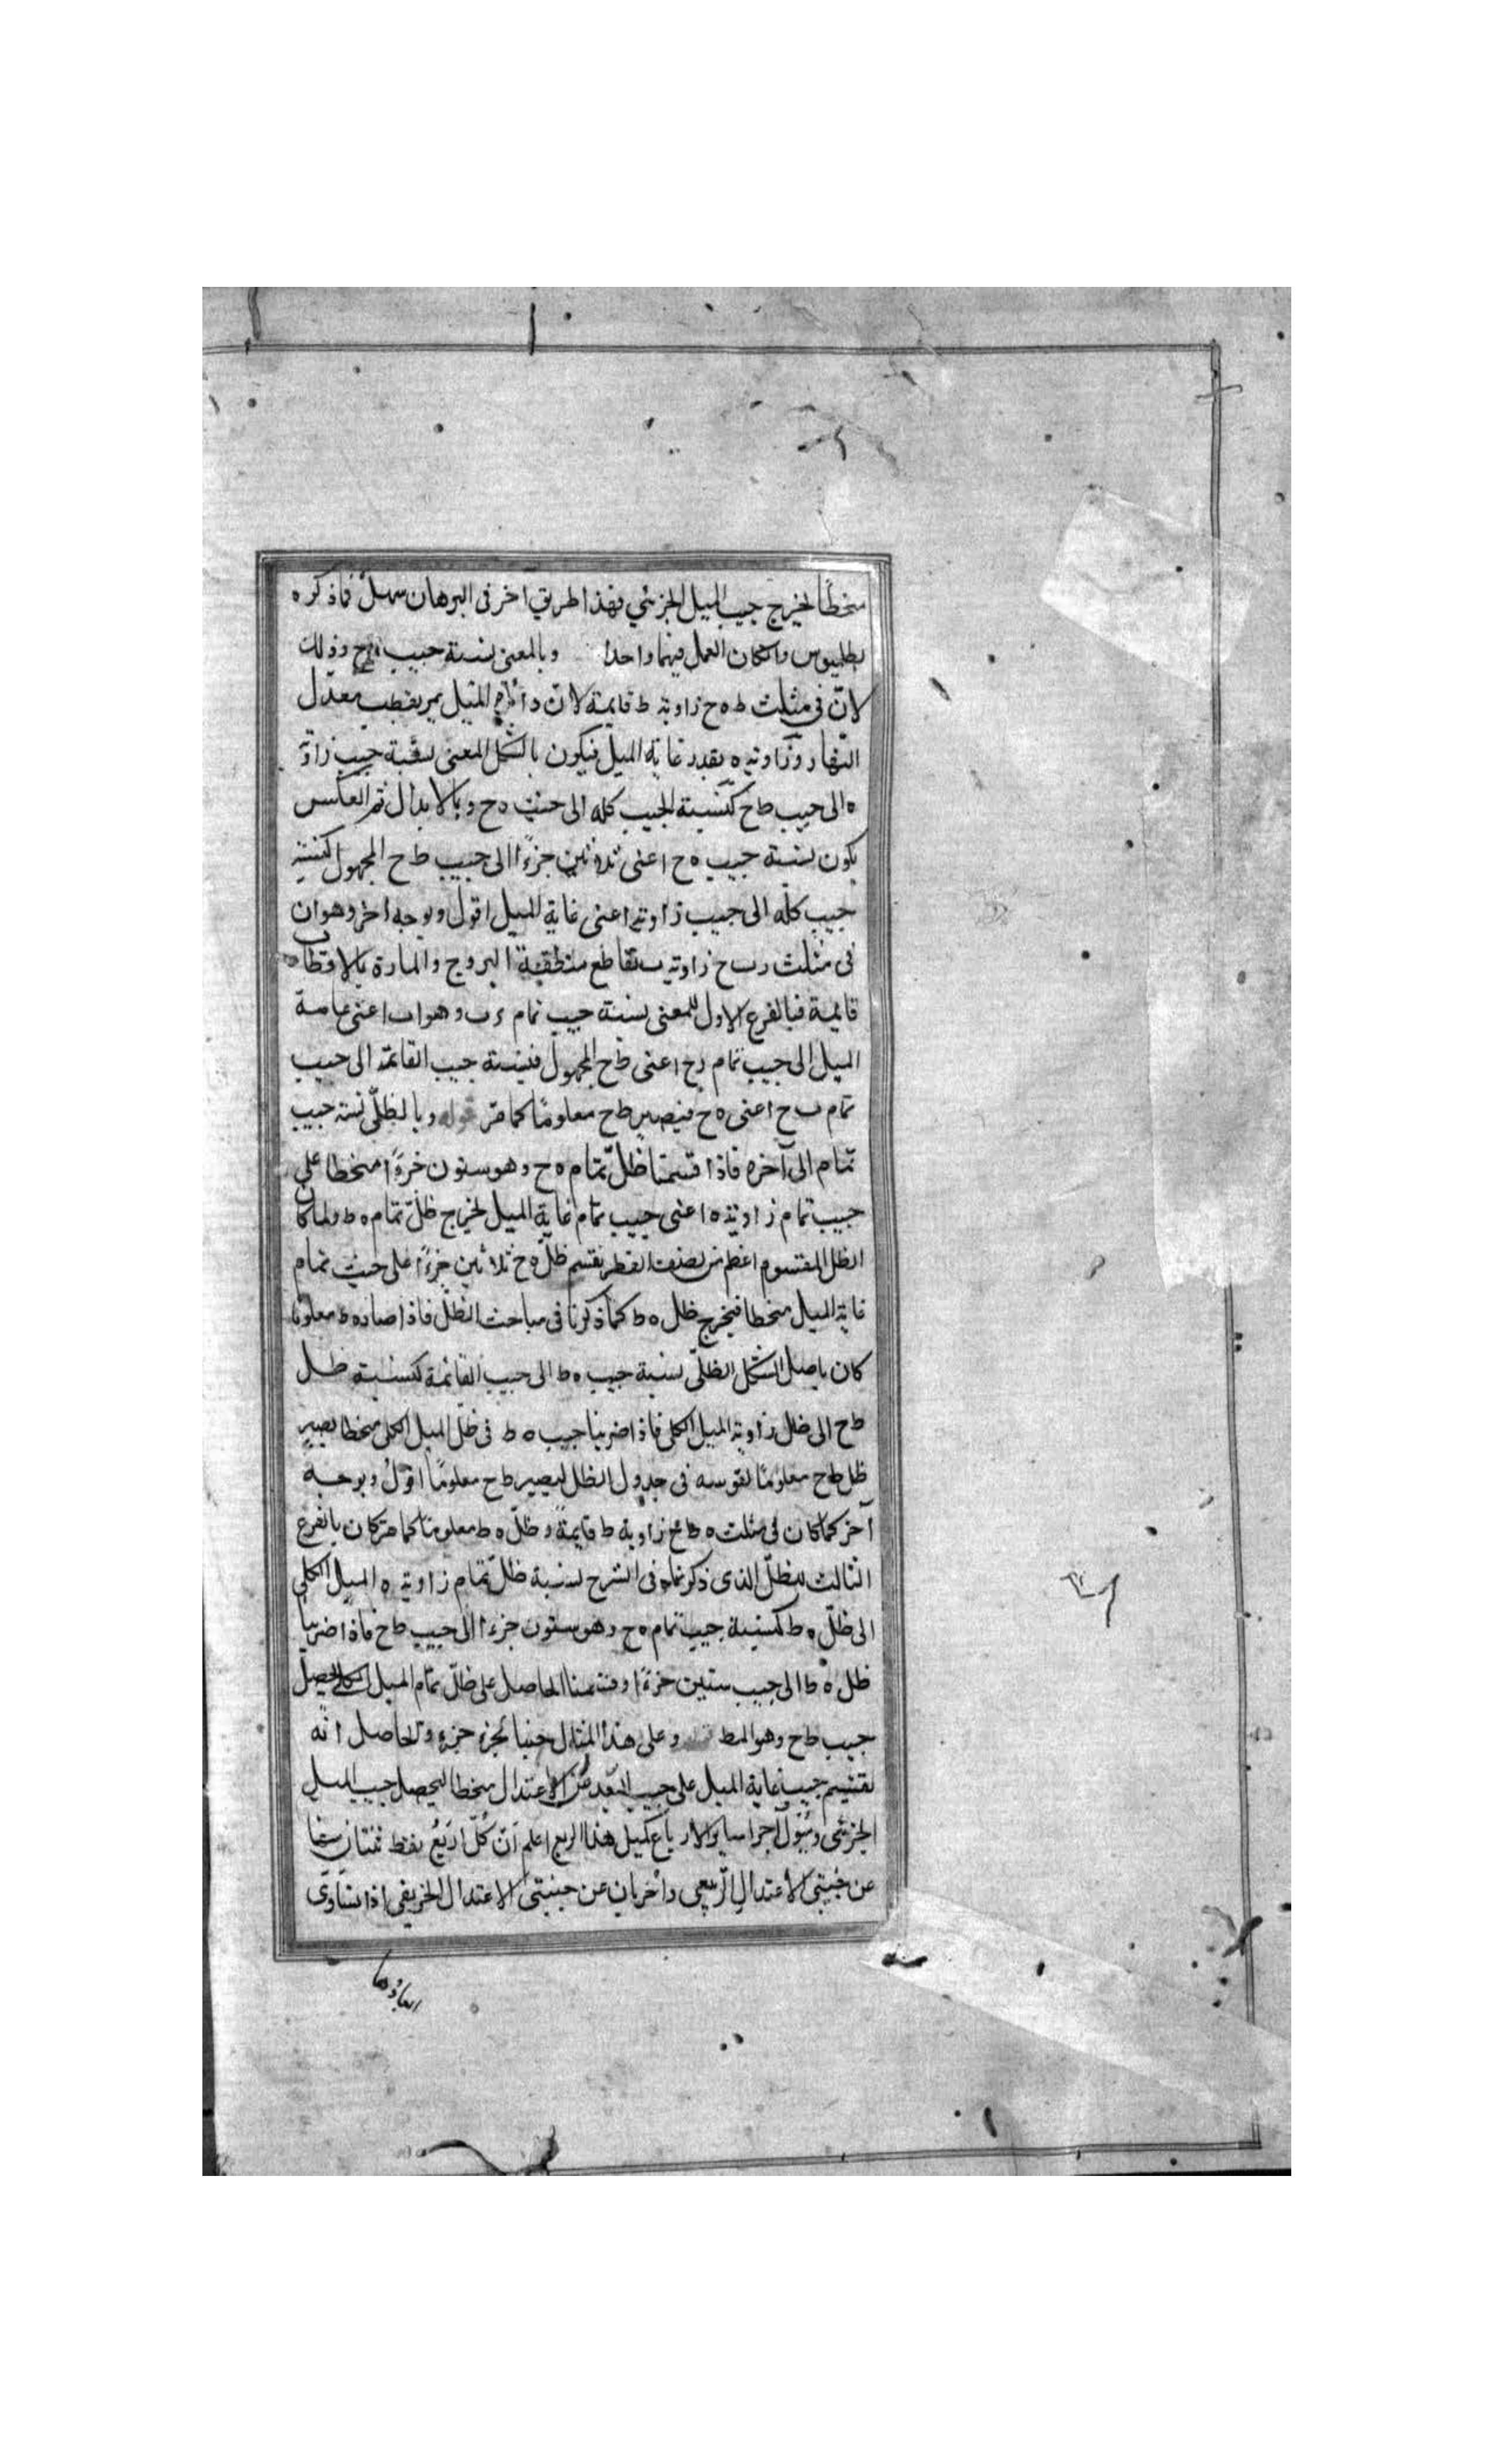 منحطًا ليخرج جيب الميل الجزئي فهذا طريق اخر فى البرهان سهل فما ذكره
بطليوس وان كان العمل فيهما واحدا وبالمعنى نسبة جيب ه ح وذلك
لانّ فى مثلث ط ه ح زاوية ط قايمة لانّ دائرة الميل يمر بقطب معدّل
النهار وزاوية ه بقدر غاية الميل فيكون بالشكل المعنى نسبة جيب زاوية
ه الى جيب ط ح كنسبة الجيب كله الى جيب ه ح وبالابدال ثم العكس
يكون نسبة جيب ه ح اعنى ثلاثين جزءًا الى جيب ط ح المجهول كنسبة
جيب كلّه الى جيب زاوية ه اعنى غاية الميل اقول وبوجه اخر وهو ان
فى مثلث ر ب ح زاوية ب تقاطع منطقة البروج والمارة بالاقطاب
قايمة فبالفرع الاول للمعنى نسبة جيب تمام ر ب وهو ا ب اعنى غاية
الميل الى جيب تمام رح اعنى ط ح المجهول فنسبة جيب القائمة الى جيب
تمام ب ح اعنى ه ح فيصير ط ح معلومًا كما مرّ قوله وبالظلّى نسبة جيب
تمام الى آخره فاذا قسمنا ظلّ تمام ه ح وهو ستون جزءًا منحطا على
جيب تمام زاوية ه اعنى جيب تمام غاية الميل ليخرج ظلّ تمام ه ط ولما كان
الظل المقسوم اعظم من نصف القطر نقسم ظلّ ه ح ثلاثين جزءًا على جيب تمام
غاية الميل منحطا فيخرج ظل ه ط كما ذكرنا فى مباحث الظلّ فاذا صار ه ط معلومًا
كان باصل الشكل الظلّى نسبة جيب ه ط الى جيب القائمة كنسبة ظل
ط ح الى ظل زاوية الميل الكلى فاذا ضربنا جيب ه ط فى ظلّ الميل الكلى منحطا يصير
ظل ط ح معلومًا نقوسه فى جدول الظل ليصير ط ح معلومًا اقول وبوجه
آخر كما كان فى مثلث ه ط ح زاوية ط قايمة وظلّ ه ط معلومًا كما مرّ كان بالفرع
الثالث للظلّ الذى ذكرناه فى الشرح نسبة ظلّ تمام زاوية ه الميل الكلى
الى ظلّ ه ط كنسبة جيب تمام ه ح وهو ستون جزءًا الى جيب ط ح فاذا ضربنا
ظل ه ط الى جيب ستين جزءًا وقسمنا الحاصل على ظلّ تمام الميل الكلى ليحصل
جيب ط ح وهو المط وعلى هذا المثال حسبنا لجزء جزء والحاصل انّه
نقسم جيب غاية الميل على جيب البعد عن الاعتدال منحطا ليحصل جيب الميل
الجزئى اجزا ساير الارباع كميل هذا الربع اعلم انّ كلّ اربع نقط ثنتان منها
عن جنبتى الاعتدال الربيعى واخريان عن جنبتى الاعتدال الخريفى اذا تساوى
ابعادها